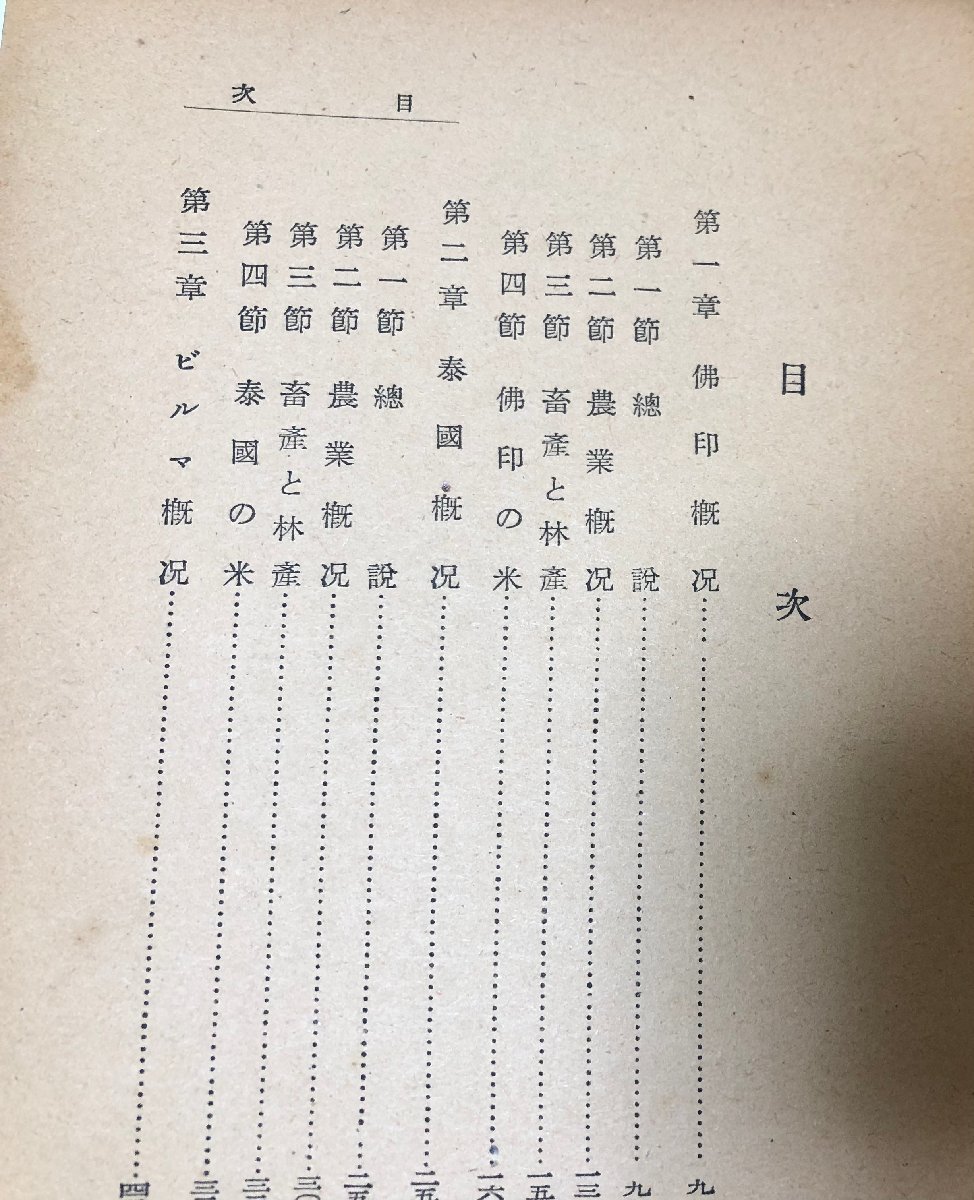 目次
目次
第一章 佛印概况……九
第一節 總說……九
第二節 農業概况……一三
第三節 畜產と林產……一五
第四節 佛印の米……一六
第二章 泰國概况……二五
第一節 總說……二五
第二節 農業概况……三〇
第三節 畜產と林產……
第四節 泰國の米……
第三章 ビルマ概况……四